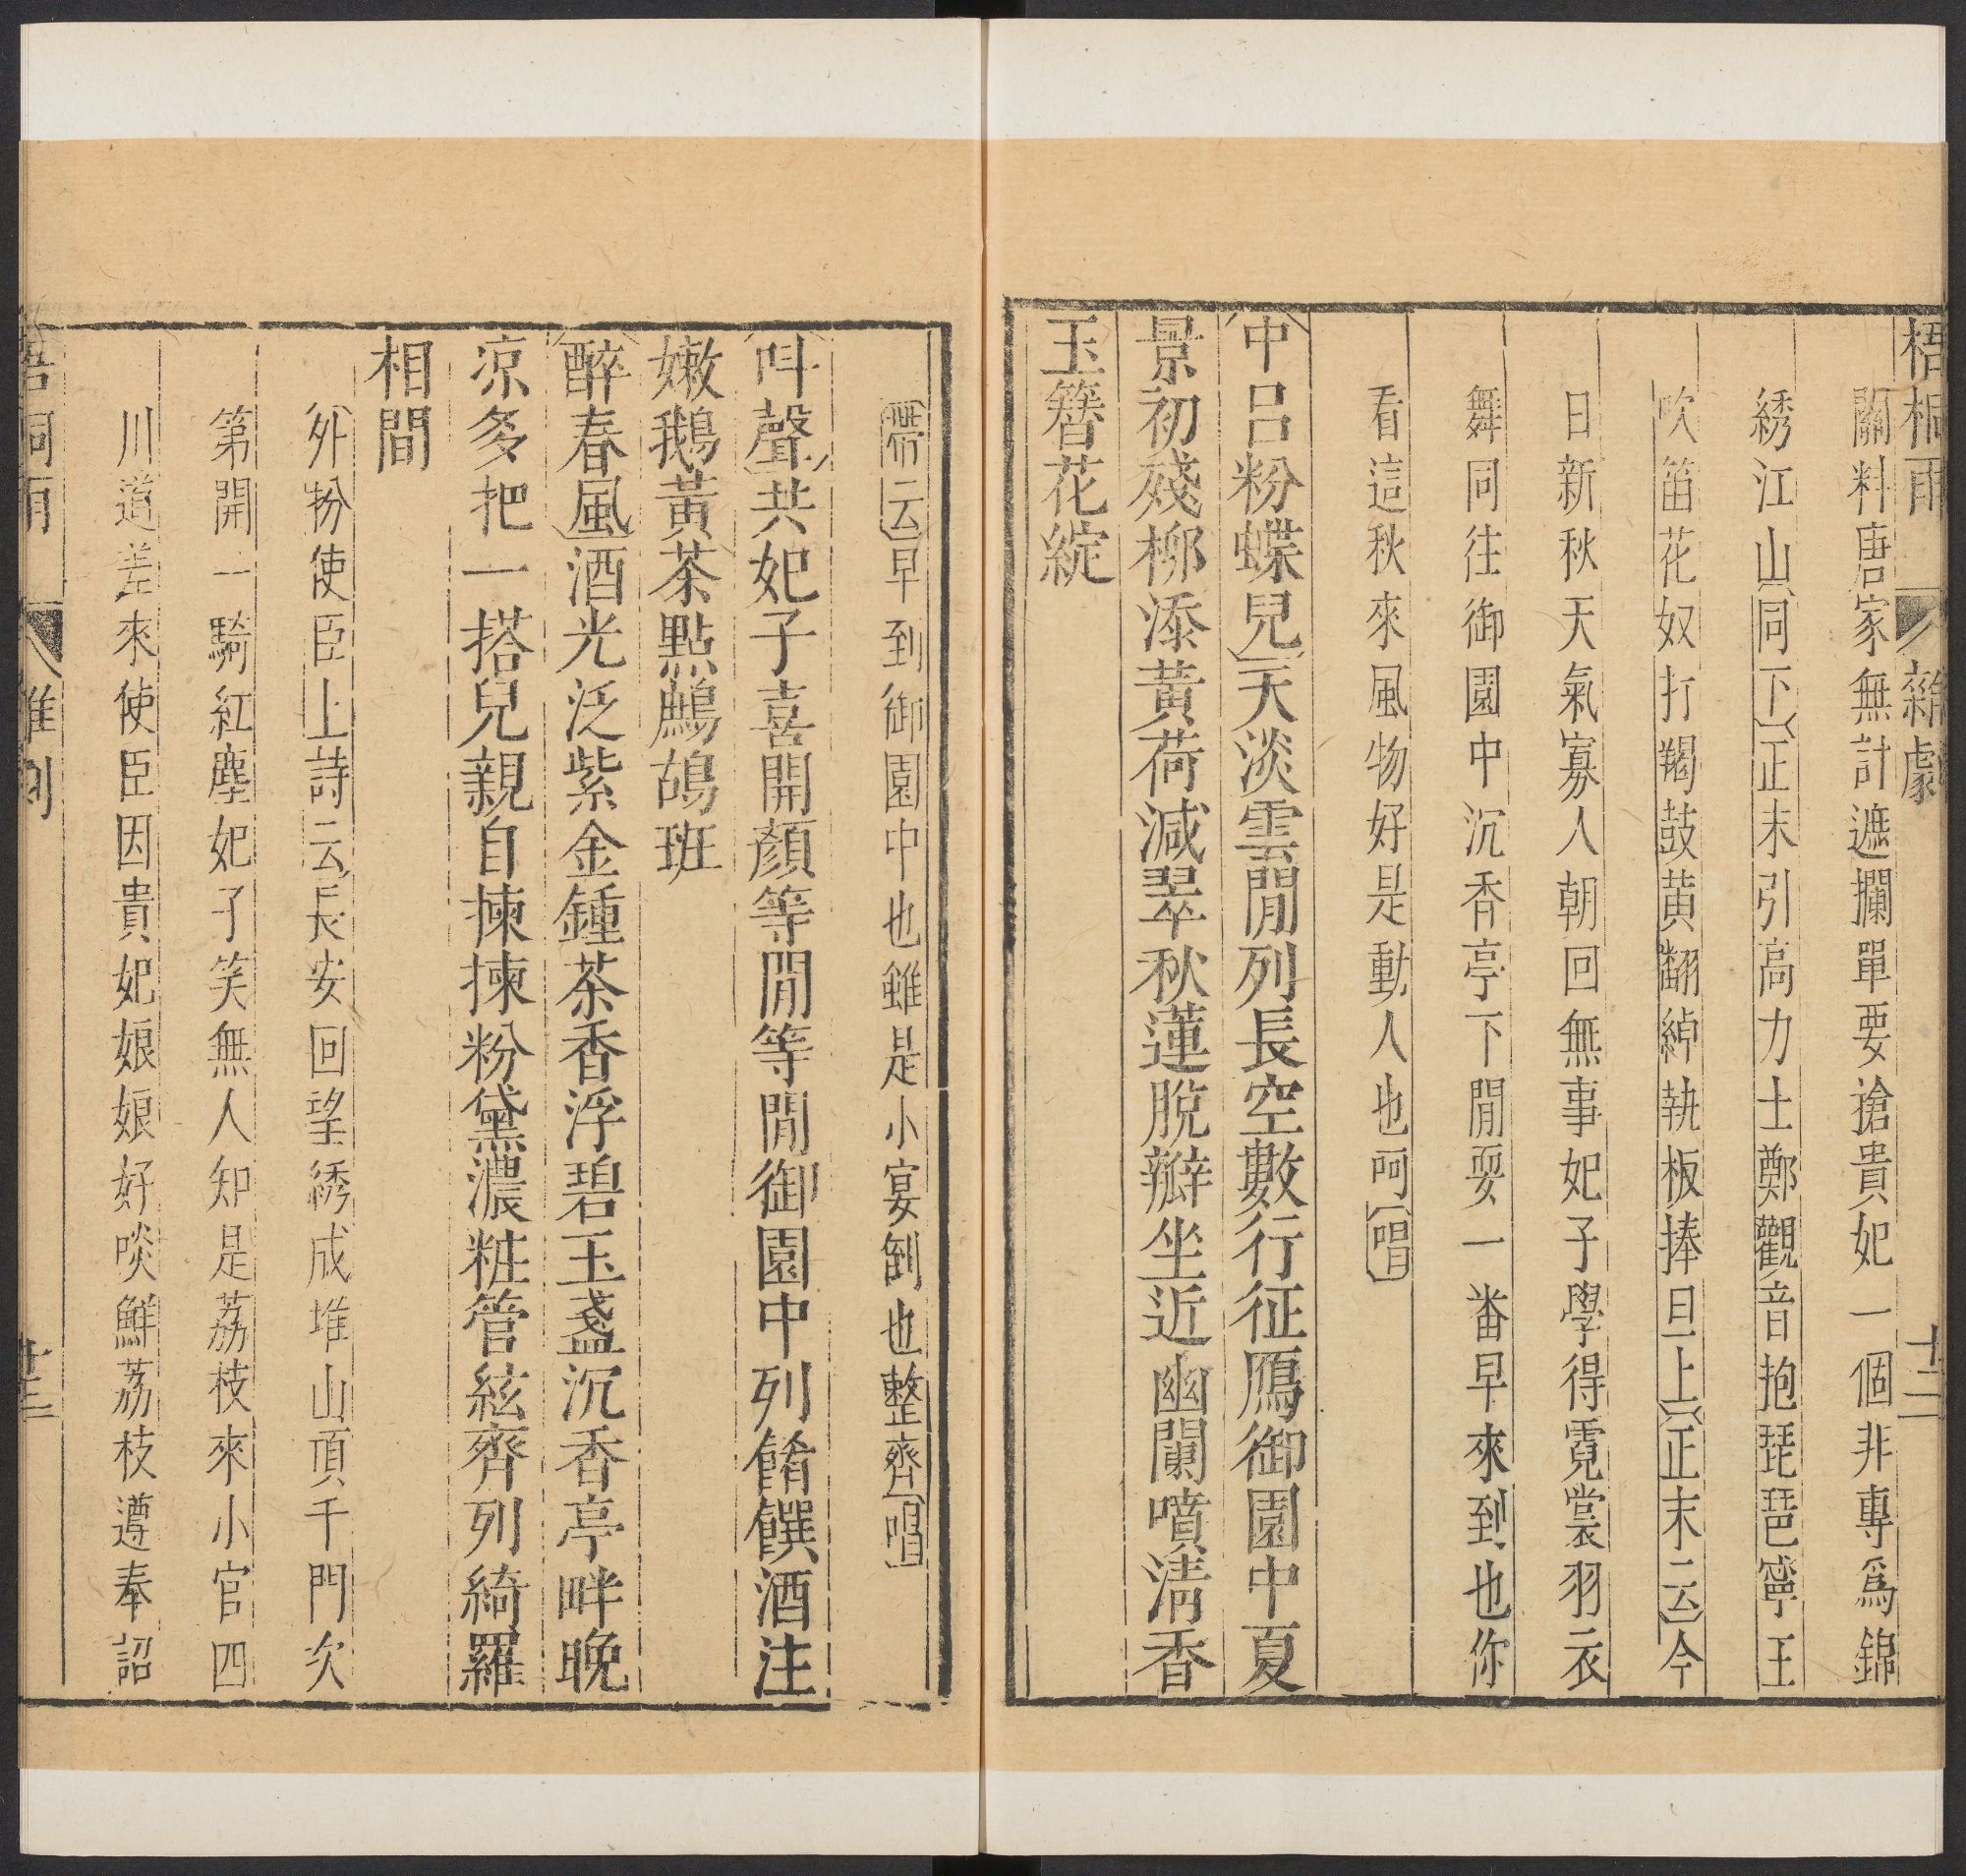 梧桐雨 雜劇 十二
關料唐家無計遮攔單要搶貴妃一個非專爲錦
綉江山同下正末引高力士鄭觀音抱琵琶寧王
吹笛花奴打羯鼓黃翻綽執板捧旦上正末云今
日新秋天氣寡人朝回無事妃子學得霓裳羽衣
舞同往御園中沉香亭下閒耍一番早來到也你
看這秋來風物好是動人也呵唱
中呂粉蝶兒天淡雲閒列長空數行征鴈御園中夏
景初殘柳添黃荷減翠秋蓮脫瓣坐近幽闌噴淸香
玉簪花綻
帶云早到御園中也雖是小宴倒也整齊唱
呌聲共妃子喜開顏等閒等閒御園中列餚饌酒注
嫩鵝黃茶點鷓鴣班
醉春風酒光泛紫金鍾茶香浮碧玉盞沉香亭畔晚
凉多把一搭兒親自揀揀粉黛濃粧管絃齊列綺羅
相間
外扮使臣上詩云長安回望綉成堆山頂千門次
第開一騎紅塵妃子笑無人知是荔枝來小官四
川道差來使臣因貴妃娘娘好啖鮮荔枝遵奉詔
梧桐雨 雜劇 十三